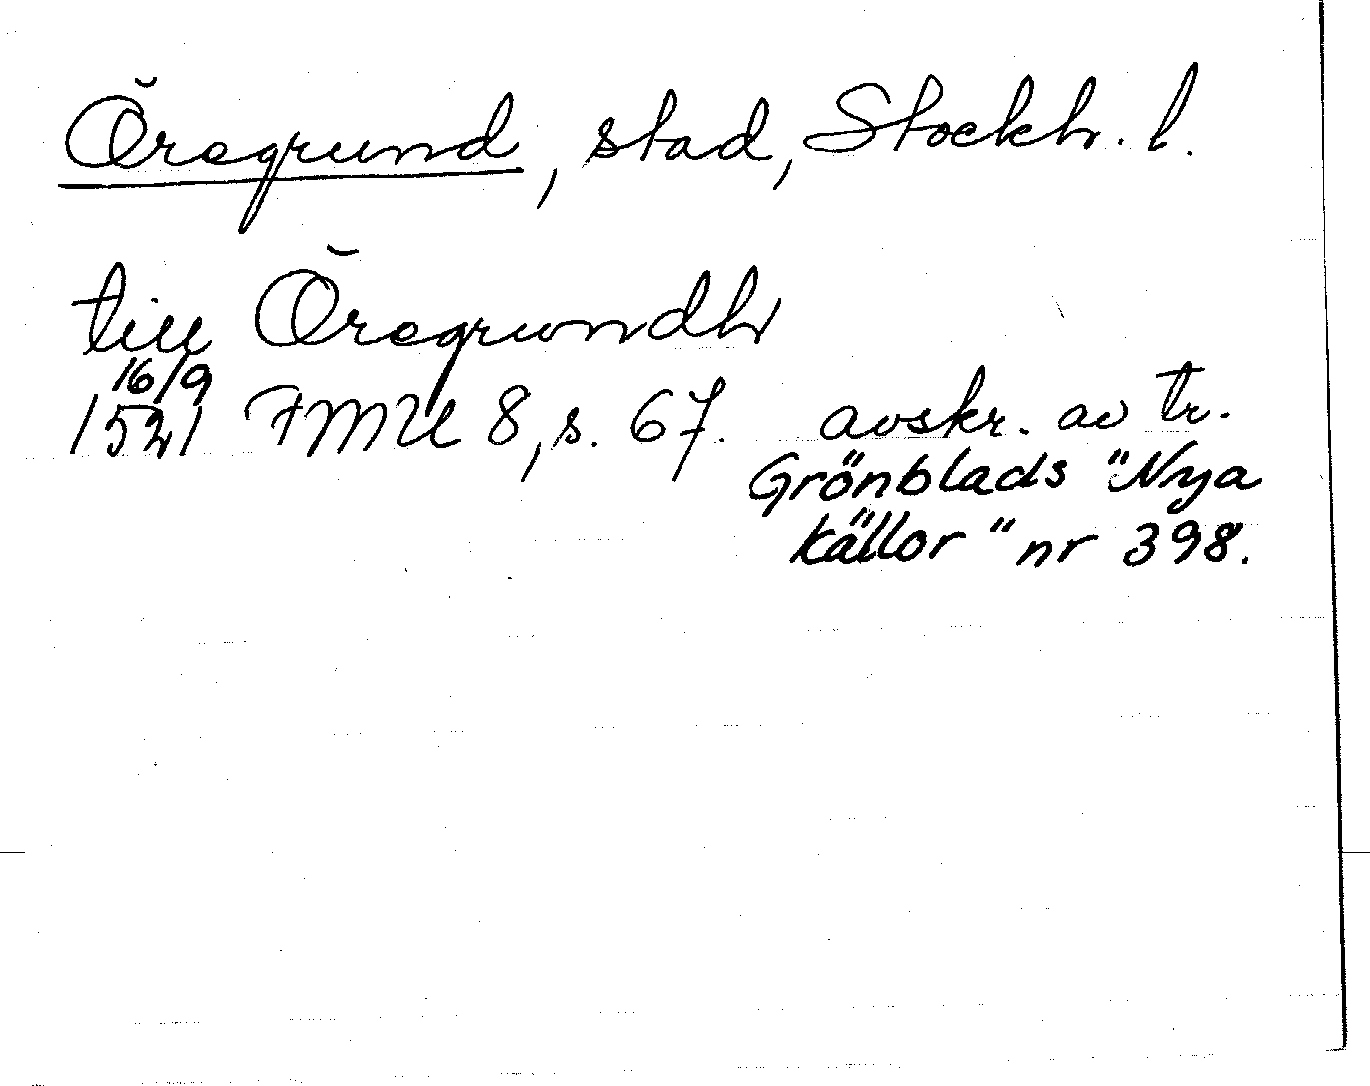 Öregrund, stad, Stockh. l.
till Öregrundh
16/9
1521 FMU 8, s. 67. avskr. av tr.
Grönblads "Nya
källor" nr 398.